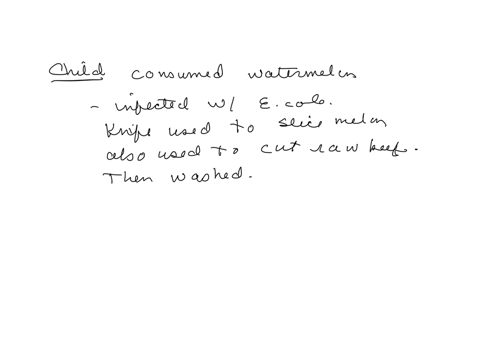 Child consumed watermelon
- infected w/ E. coli.
Knife used to slice melon
also used to cut raw beef.
Then washed.